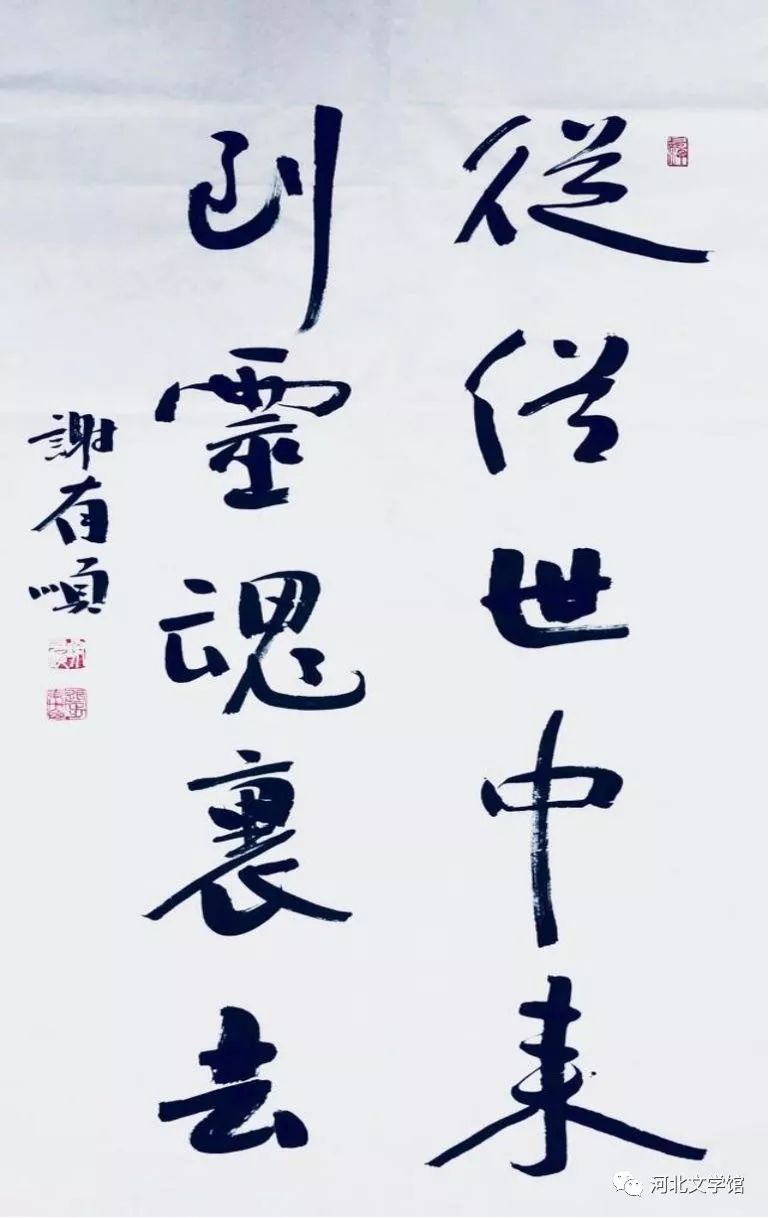 從俗世中来
到靈魂裏去
謝有順
河北文学馆